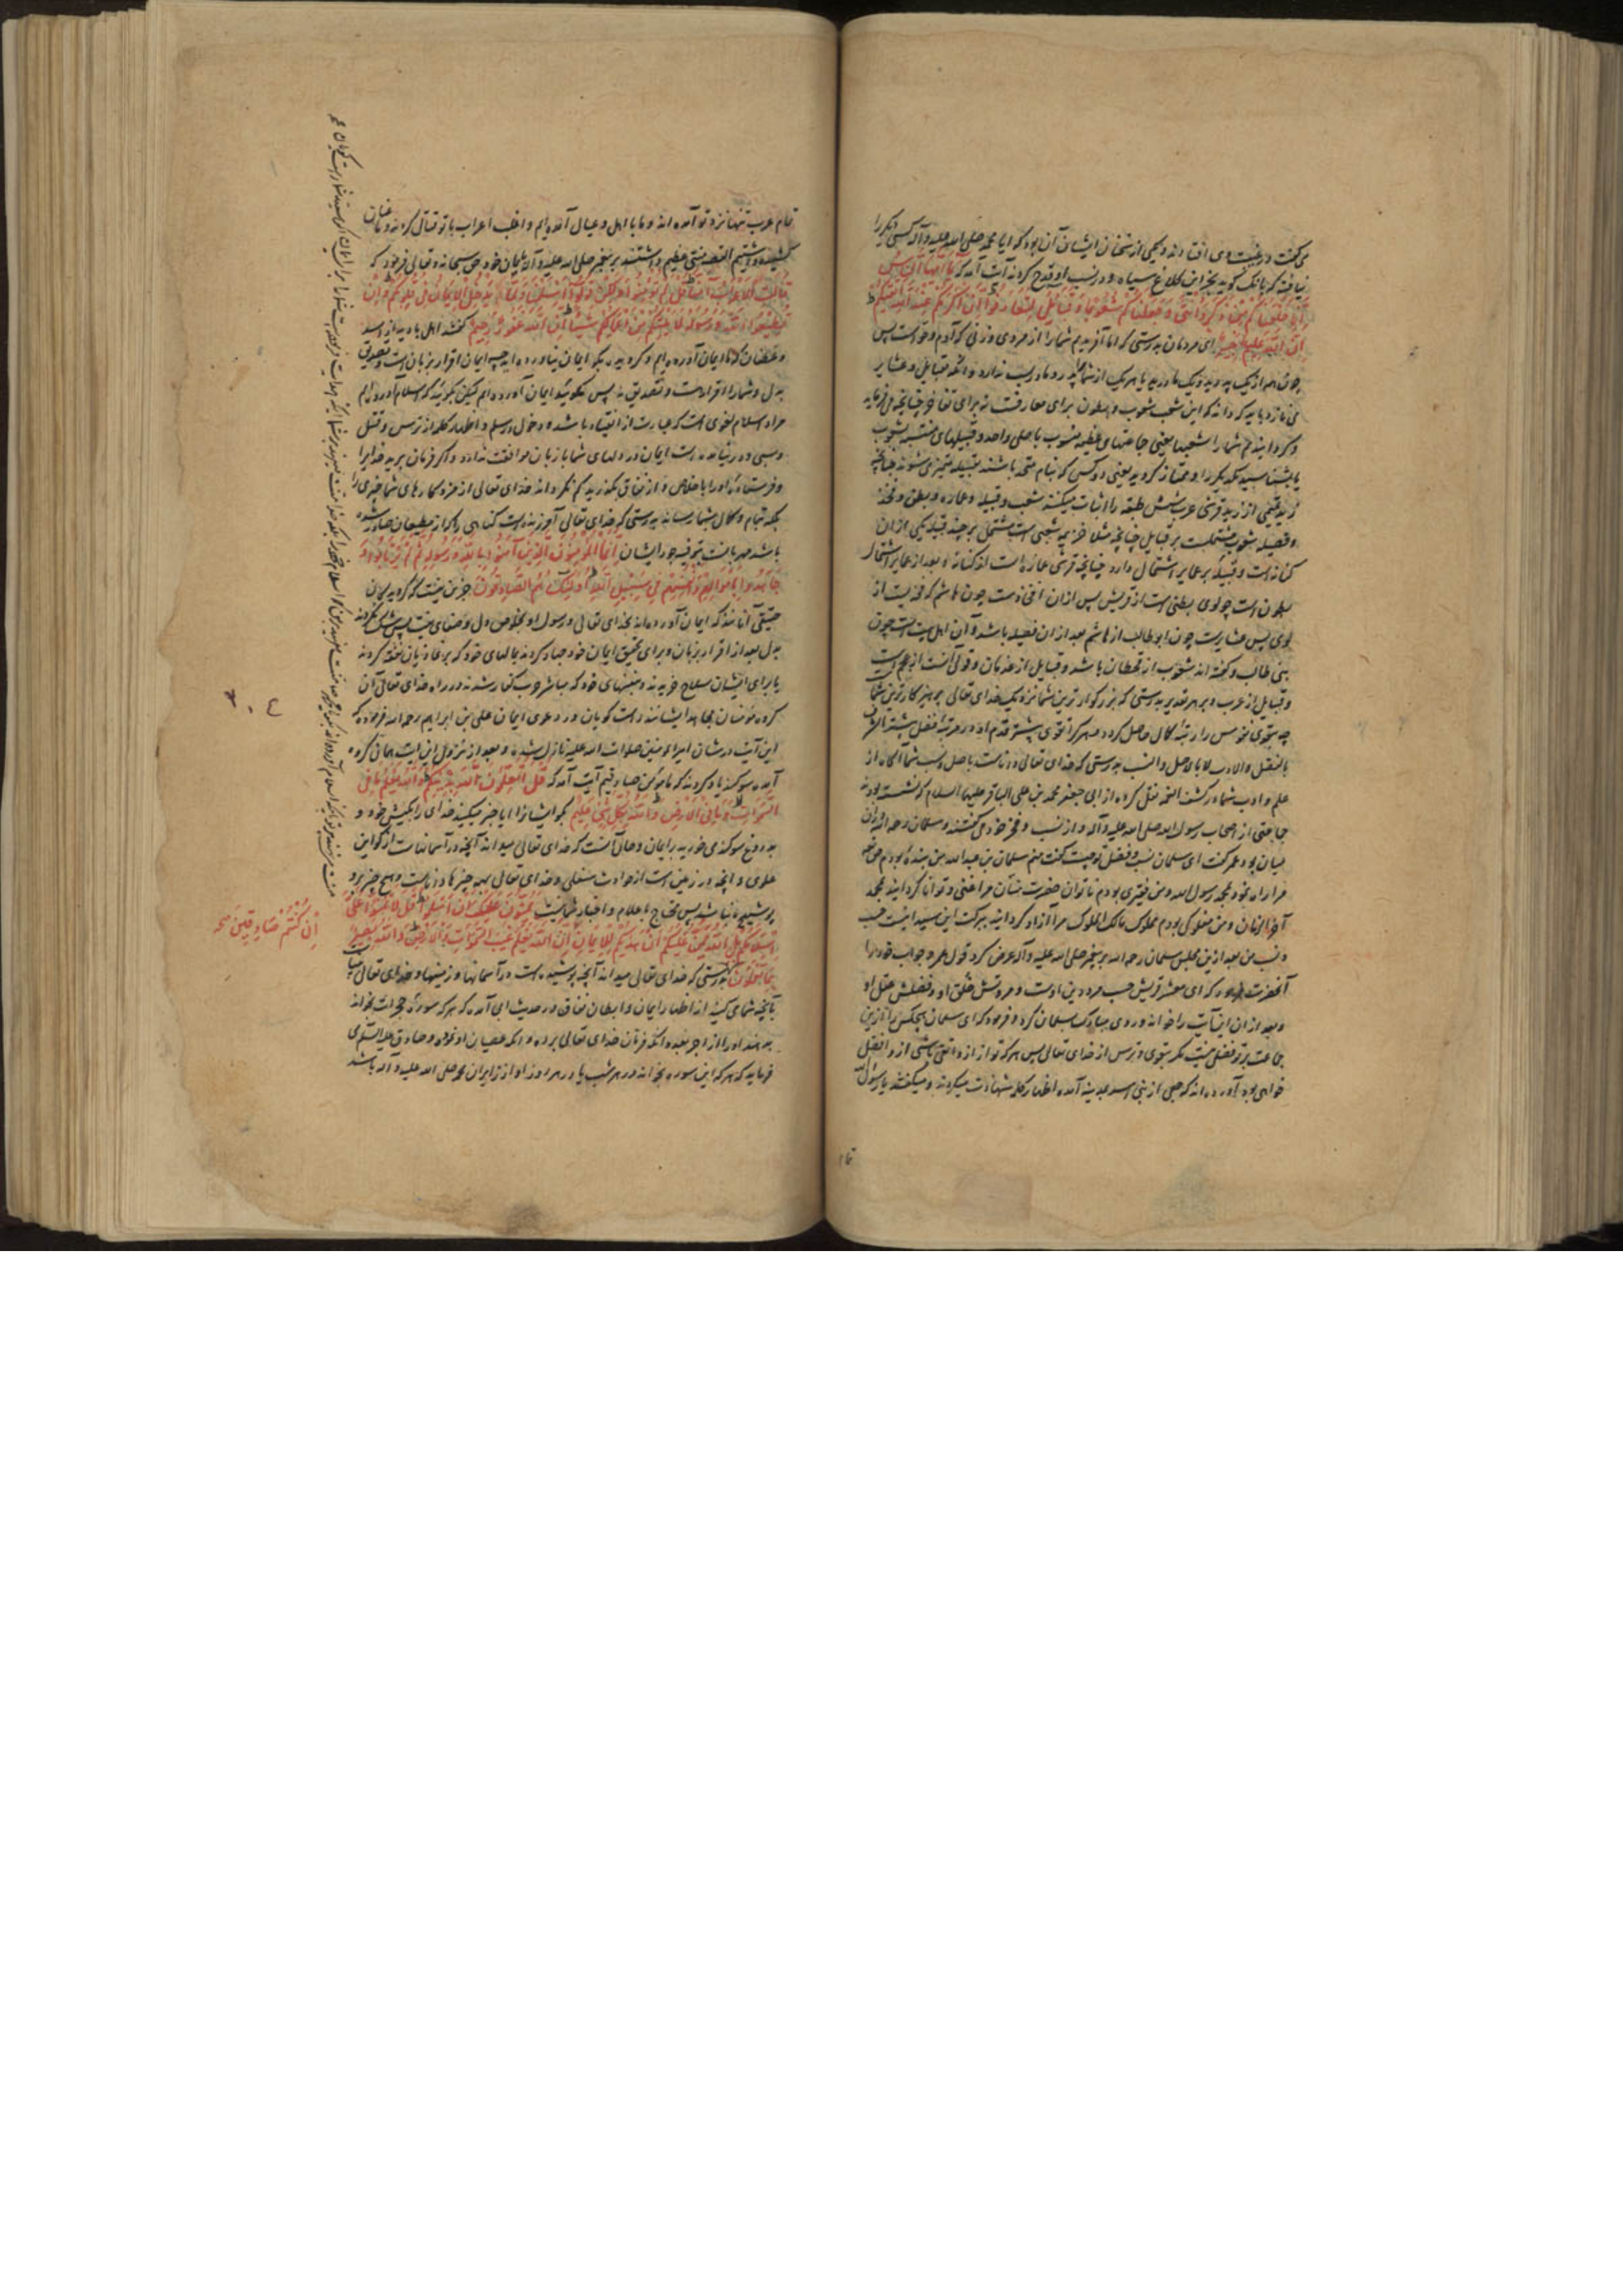 می گفت در غیبت وی افتادند و یکی از سخنان ایشان آن بود که ایا محمد صلی الله علیه وآله کسی دیگر را
نیافته که بانک گوید بجز این کلاغ سیاه و در نسب او قدح کردند آیت آمد که یا ایها الناس
انا خلقناکم من ذکر وانثی وجعلناکم شعوبا وقبائل لتعارفوا ان اکرمکم عند الله اتقیکم
ان الله علیم خبیر ای مردمان بدرستی که ما آفریدیم شما را از مردی و زنی که آدم و حواست پس
چون همه از یک پدرید و یک مادرید یا هر یک از شما پدر و مادریست ندارد و آنکه قبایل و عشایر
می نازد باید که داند که این شعب شعوب و بطون برای معارفت نه برای تفاخر چنانچه میفرماید
وکردانیدیم شما را شعبها یعنی جماعتهای عظیمه منسوب باصل واحد و قبیلهای منتسبه بشعوب
یا بشناسید یکدیگر را و ممتاز کردید یعنی دو کس که بنام متحد باشند بقبیله متمیزی شوند چنانچه
زید تمیمی از زید قرشی عرب شش طبقه را اثبات میکنند شعب و قبیله و عماره و بطن و فخذ
و فصیله شعوب مشتملست بر قبایل چنانچه مثلا خزیمه شعبی است مشتمل بر چند قبیله یکی از ان
کنانه است و قبیله بر عمایر اشتمال دارد چنانچه قریش عماره است از کنانه و بعد از عمایر اشتمال
بطون است چو لوی بطنی است از قریش پس ازان افخاذست چون هاشم که فخذیست از
لوی پس عشایرست چون ابوطالب از هاشم بعد ازان فصیله باشد و آن اهل بیت است چون
بنی طالب و گفته اند شعوب از قحطان باشد و قبایل از عدنان و قولی آنست از عجم است
و قبایل از عرب و بر هر تقدیر بدرستی که بزرگوارترین شما نزدیک خدای تعالی پرهیزکارترین شما
چه بتقوی نفوس را رتبه کمال حاصل کردد و هر کرا تقوی بیشتر قدم او در مرتبه فضل بیشتر الشرف
بالفضل والادب لا بالاصل والنسب بدرستی که خدای تعالی داناست باصل و نسب شما آگاه از
علم و ادب شما در کشف الغمه نقل کرده از ابی جعفر محمد بن علی الباقر علیهما السلام که نشسته بودند
جماعتی از اصحاب رسول الله صلی الله علیه وآله و از نسب و فخر خود می گفتند و سلمان رحمه الله در ان
میان بود عمر گفت ای سلمان نسب و فضل تو چیست گفت منم سلمان بن عبدالله من بنده بودم حق تعالی
مرا راه نمود بمحمد رسول الله و من فقیری بودم ناتوان حضرت منان مرا غنی و توانا کردانید بمحمد
آخر الزمان و من مملوکی بودم مملوک مالک الملوک مرا آزاد کردانید ببرکت این سید اینست حسب
و نسب من بعد ازین مجلس سلمان رحمه الله بر پیغمبر صلی الله علیه وآله عرض کرد قول عمر و جواب خود را
آنحضرت فرمود که ای معشر قریش حسب مرد دین اوست و مروتش خلق او و فضلش عقل او
و بعد ازان این آیت را خواند و روی مبارک بسلمان کرد و فرمود که ای سلمان هیچکس را ازین
جماعت بر تو فضلی نیست مگر بتقوی و ترس از خدای تعالی پس هر که تو از او اتقی باشی از او افضل
خواهی بود آورده اند که جمعی از بنی اسد بمدینه آمده اظهار کلمه شهادت میکردند و میگفتند یا رسول الله
تمام
تمام عرب تنها نزد تو آمده اند و ما با اهل و عیال آمده ایم و اغلب اعراب با تو قتال کردند و ما
کشیده داشتیم القصه منتی عظیم داشتند بر پیغمبر صلی الله علیه وآله بایمان خود حق سبحانه وتعالی فرمود که
قالت الاعراب امنا قل لم تؤمنوا ولکن قولوا اسلمنا ولما یدخل الایمان فی قلوبکم وان
تطیعوا الله ورسوله لا یلتکم من اعمالکم شیئا ان الله غفور رحیم گفتند اهل بادیه از اسد
و غطفان که ما ایمان آورده ایم و گرویده بگو ایمان نیاورده اید چه ایمان اقرار بزبان است و تصدیق
بدل و شما را اقرار هست و تصدیق نه پس مگوئید ایمان آورده ایم لیکن بگوئید که اسلام آورده ایم
مراد اسلام لغوی است که عبارت از انقیاد باشد و دخول در سلم و اظهار کلمه از ترس و قتل
و سبی و در نیامده است ایمان در دلهای شما با زبان موافقت ندارد و اگر فرمان برید خدایرا
و فرستاده او را باخلاص و از نفاق بگذرید کم نکرداند خدای تعالی از مزد کارهای شما چیزی را
بلکه تمام و کمال بشما رساند بدرستی که خدای تعالی آمرزنده است گناهی را که از مطیعان صادر شود
باشد مهربانست بتوفیر اجور ایشان انما المؤمنون الذین آمنوا بالله ورسوله ثم لم یرتابوا و
جاهدوا باموالهم وانفسهم فی سبیل الله اولئک هم الصادقون جز این نیست که گرویدگان
حقیقی آنانند که ایمان آورده اند بخدای تعالی و رسول او بخلوص دل و صفای نیت پس شک نکردند
بدل بعد از اقرار بزبان و برای تحقیق ایمان خود جهاد کردند بمالهای خود که بر غازیان نفقه کردند
یا برای ایشان سلاح خریدند و بنفسهای خود که مباشر حرب کفار شدند در راه خدای تعالی آن
گروه مؤمنان مجاهد ایشانند راست گویان در دعوی ایمان علی بن ابراهیم رحمه الله فرموده که
این آیت در شان امیرالمؤمنین صلوات الله علیه نازل شده و بعد از نزول این آیت همان گروه
آمده سوگند یاد کردند که ما مؤمن صادقیم آیت آمد که قل اتعلمون الله بدینکم والله یعلم ما فی
السموات وما فی الارض والله بکل شیء علیم بگو ایشانرا ایا خبر میکنید خدای را بکیش خود و
بدروغ سوگند می خورید بر ایمان و حال آنست که خدای تعالی میداند آنچه در آسمانهاست از کواین
علوی و آنچه در زمین است از حوادث سفلی و خدای تعالی بهمه چیزها داناست و هیچ چیز برو
پوشیده نباشد پس محتاج باعلام و اخبار شما نیست یمنون علیک ان اسلموا قل لا تمنوا علی
اسلامکم بل الله یمن علیکم ان هدیکم للایمان ان الله یعلم غیب السموات والارض والله بصیر
بما تعملون بدرستی که خدای تعالی میداند آنچه پوشیده است در آسمانها و زمینها و خدای تعالی بیناست
بآنچه شما می کنید از اظهار ایمان و ابطان نفاق در حدیث ابی آمده که هر که سوره حجرات بخواند
بدهند او را از اجر بعدد آنکه فرمان خدای تعالی برده و آنکه عصیان او نموده و صادق علیه السلام می
فرماید که هر که این سوره بخواند در هر شب یا در هر روز او از زایران محمد صلی الله علیه وآله باشد
ان کنتم صادقین صح
۳۰٤